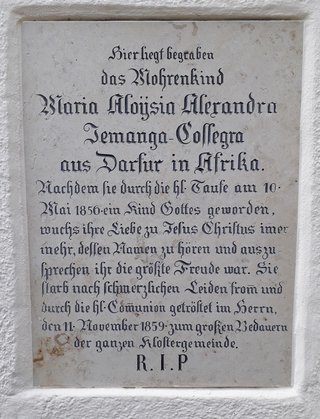 Hier liegt begraben
das Mohrenkind
Maria Aloÿsia Alexandra
Jemanga-Cossegra
aus Darfur in Afrika.
Nachdem sie durch die hl. Taufe am 10.
Mai 1856 ein Kind Gottes geworden,
wuchs ihre Liebe zu Jesus Christus imer
mehr, dessen Namen zu hören und auszu
sprechen ihr die größte Freude war. Sie
starb nach schmerzlichen Leiden from und
durch die hl. Comunion getröstet im Herrn,
den 11. November 1859 zum großen Bedauern
der ganzen Klostergemeinde.
R. I. P